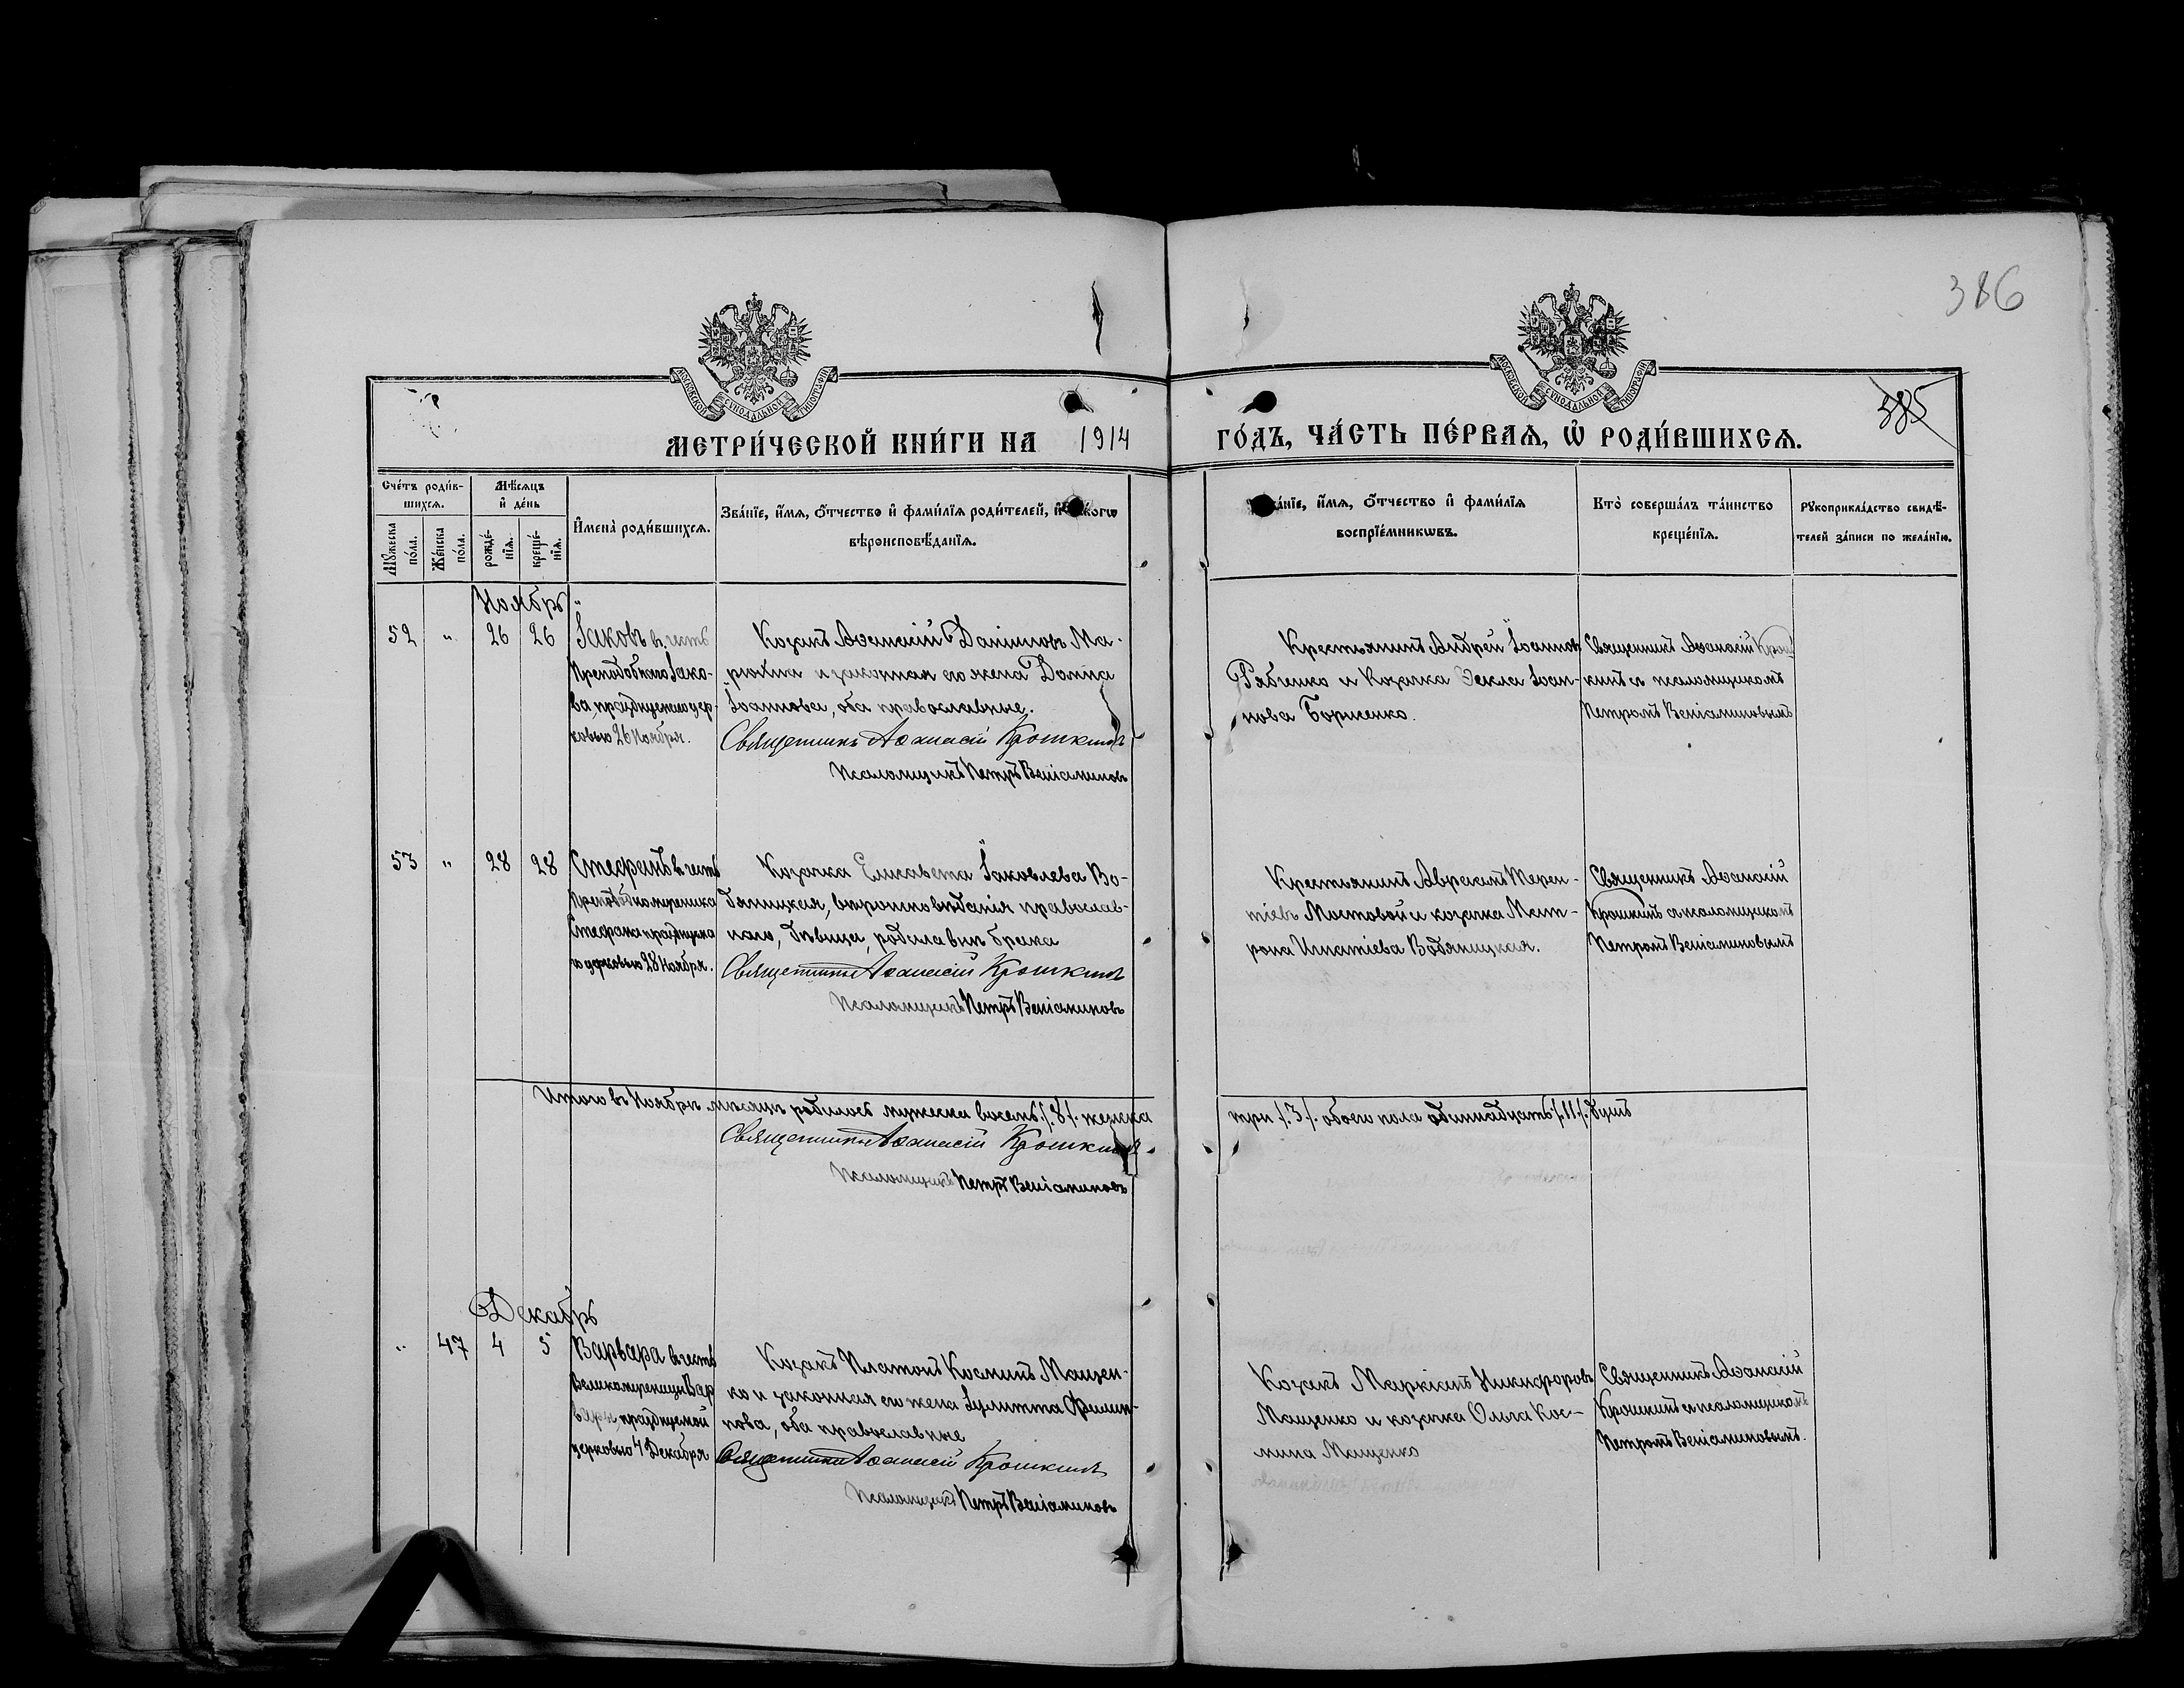 386
МОСКОВСКОЙ СѴНОДАЛЬНОЙ ТИПОГРАФІИ
МОСКОВСКОЙ СѴНОДАЛЬНОЙ ТИПОГРАФІИ
385
МЕТРИ́ЧЕСКОЙ КНИ́ГИ НА 1914 ГО́ДЪ, ЧА́СТЬ ПЕ́РВАѦ, Ѡ҆ РОДИ́ВШИХСѦ.
Сче́тъ роди́в-
шихсѧ.
Мѣ́сѧцъ
и҆ де́нь
Мꙋ́жеска по́ла.
Же́нска по́ла.
рожде́-
нїѧ.
креще́-
нїѧ.
И҆мена̀ роди́вшихсѧ.
Зва́нїе, и҆́мѧ, ѻ҆́тчество и҆ фами́лїѧ роди́телей, и҆
вѣроисповѣ́данїѧ.
и҆́мѧ, ѻ҆́тчество и҆ фами́лїѧ
воспрїе́мникѡвъ.
Кто̀ соверша́лъ та́инство
креще́нїѧ.
Рꙋкоприкла́дство свидѣ́-
телей за́писи по жела́нїю.
Ноябрь
52 " 26 26
Іаковъ в честь
Преподобного Іако-
ва, празднуемаго цер-
ковью 26 Ноября.
Козакъ Аѳанасій Даніиловъ Ма-
и законная его жена Домна
Іоаннова, оба православные.
Священникъ Аѳанасій Крошкинъ
Псаломщикъ Петръ Веніаминовъ
Крестьянинъ Андрей Іоанновъ
Рябченко и Козачка Ѳекла Іоан-
нова Борженко.
Священникъ Аѳанасій Крош-
кинъ съ псаломщикомъ
Петромъ Веніаминовымъ
53 " 28 28
Стефанъ в честь
Преподобномученика
Стефана празднуема-
го церковью 28 Ноября.
Козачка Елисавета Іаковлева Во-
дяницкая, вѣроисповѣданія православ-
наго, дѣвица, родила внѣ брака
Священникъ Аѳанасій Крошкинъ
Псаломщикъ Петръ Веніаминовъ
Крестьянинъ Аврамъ Терен-
тіевъ Мостовой и козачка Мат-
рона Игнатіева Водяницкая.
Священникъ Аѳанасій
Крошкинъ съ псаломщикомъ
Петромъ Веніаминовымъ
Итого въ Ноябрѣ мѣсяцѣ родилось мужеска восемь /.8./. женска три /.3./. обоего пола одиннадцать /.11./. душъ
Священникъ Аѳанасій Крошкинъ
Псаломщикъ Петръ Веніаминовъ
Декабрь
" 47 4 5
Варвара въ честь
Великомученицы Вар
вары, празднуемой
церковью 4 Декабря
Козакъ Платонъ Косминъ Мащен-
ко и законная его жена Іулитта Филип-
пова, оба православные
Священникъ Аѳанасій Крошкинъ
Псаломщикъ Петръ Веніаминовъ
Козакъ Маркіанъ Никифоровъ
Мащенко и козачка Ольга Кос-
мина Мащенко
Священникъ Аѳанасій
Крошкинъ съ псаломщикомъ
Петромъ Веніаминовымъ.